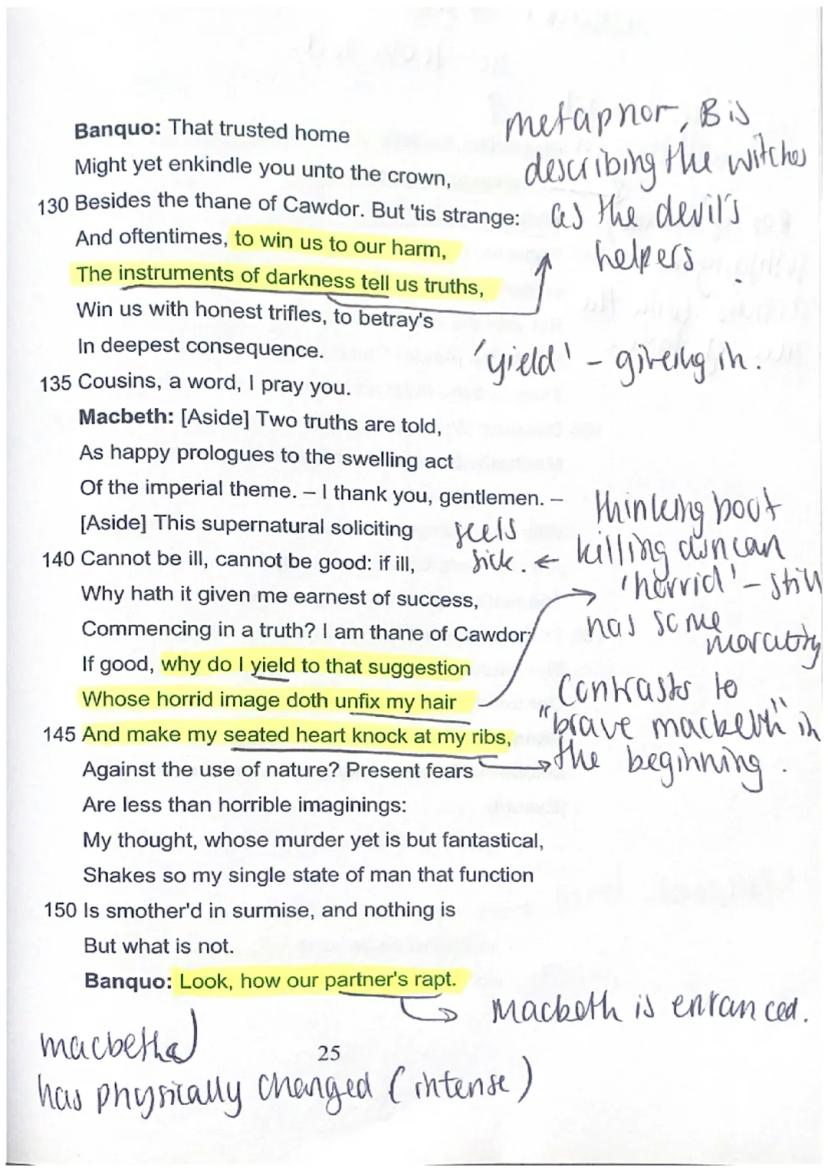 Banquo: That trusted home
Might yet enkindle you unto the crown,
130 Besides the thane of Cawdor. But 'tis strange:
And oftentimes, to win us to our harm,
The instruments of darkness tell us truths,
Win us with honest trifles, to betray's
In deepest consequence.
135 Cousins, a word, I pray you.
Macbeth: [Aside] Two truths are told,
As happy prologues to the swelling act
Of the imperial theme. – I thank you, gentlemen. –
[Aside] This supernatural soliciting
140 Cannot be ill, cannot be good: if ill,
Why hath it given me earnest of success,
Commencing in a truth? I am thane of Cawdor:
If good, why do I yield to that suggestion
Whose horrid image doth unfix my hair
145 And make my seated heart knock at my ribs,
Against the use of nature? Present fears
Are less than horrible imaginings:
My thought, whose murder yet is but fantastical,
Shakes so my single state of man that function
150 Is smother'd in surmise, and nothing is
But what is not.
Banquo: Look, how our partner's rapt.
metaphor, B is
describing the witches
as the devil's
helpers.
'yield' - giving in.
feels
sick. ←
thinking bout
killing duncan
'horrid' - still
has some
morality
Contrasts to
"brave macbeth" in
the beginning.
Macbeth is entranced.
macbeth
has physically changed (intense)
25